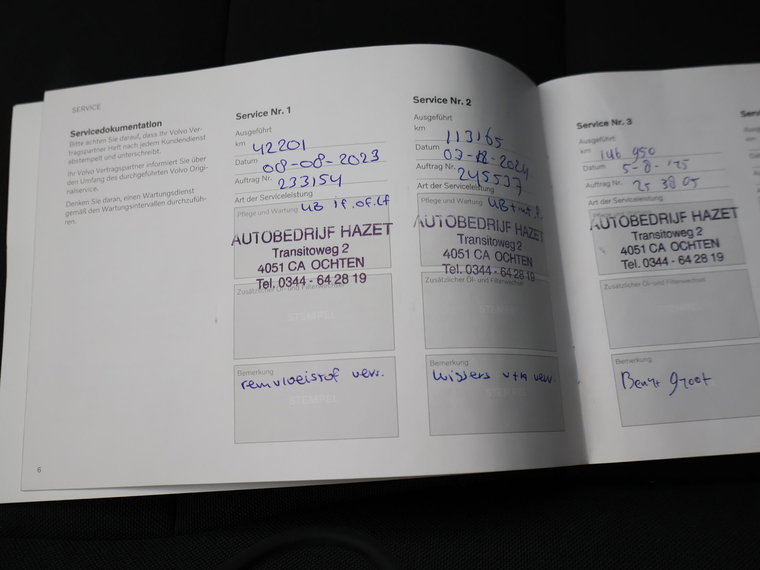 SERVICE
Servicedokumentation
Bitte achten Sie darauf, dass Ihr Volvo Ver-
tragspartner Heft nach jedem Kundendienst
abstempelt und unterschreibt.
Ihr Volvo Vertragspartner informiert Sie über
den Umfang des durchgeführten Volvo Origi-
nalservice.
Denken Sie daran, einen Wartungsdienst
gemäß den Wartungsintervallen durchzufüh-
ren.
6
Service Nr. 1
Ausgeführt
km 42201
Datum 08-08-2023
Auftrag Nr. 233154
Art der Serviceleistung
Pflege und Wartung
AUTOBEDRIJF HAZET
Transitoweg 2
4051 CA OCHTEN
Tel. 0344 - 64 28 19
Zusätzlicher Öl- und Filterwechsel
STEMPEL
Bemerkung
remvloeistof verv.
STEMPEL
Service Nr. 2
Ausgeführt
km 113165
Datum
Auftrag Nr. 245537
Art der Serviceleistung
Pflege und Wartung
AUTOBEDRIJF HAZET
Transitoweg 2
4051 CA OCHTEN
Tel. 0344 - 64 28 19
Zusätzlicher Öl- und Filterwechsel
STEMPEL
Bemerkung
wissers v+a verv.
STEMPEL
Service Nr. 3
Ausgeführt
km 146 950
Datum 5-8-'25
Auftrag Nr. 25 38 05
Art der Serviceleistung
Pflege und Wartung
AUTOBEDRIJF HAZET
Transitoweg 2
4051 CA OCHTEN
Tel. 0344 - 64 28 19
Zusätzlicher Öl- und Filterwechsel
STEMPEL
Bemerkung
Beurt groot